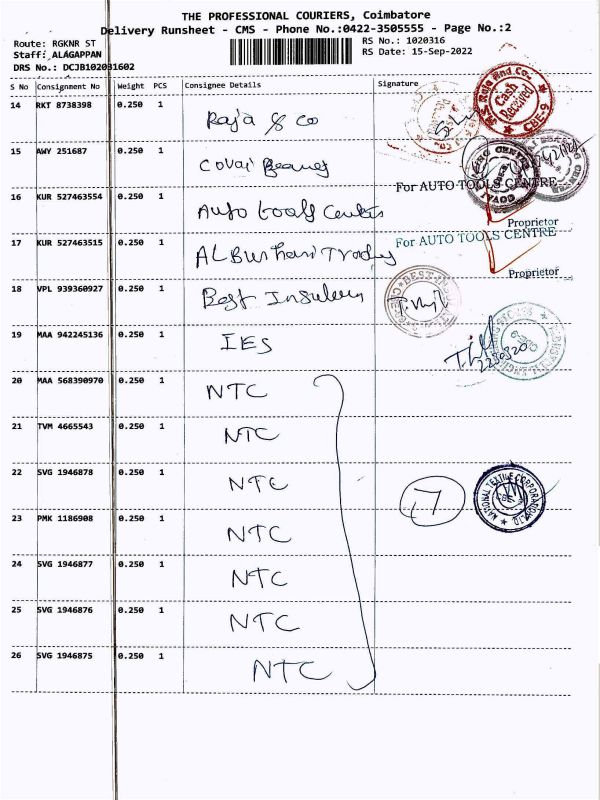 THE PROFESSIONAL COURIERS, Coimbatore
Delivery Runsheet - CMS - Phone No.:0422-3505555 - Page No.:2
Route: RGKNR ST
RS No.: 1020316
Staff: ALAGAPPAN
RS Date: 15-Sep-2022
DRS No.: DCJB102031602
S No Consignment No Weight PCS Consignee Details Signature
14 RKT 8738398 0.250 1 Raja & Co
Raja And Co. Cash Received CBE-9
15 AWY 251687 0.250 1 Covai
16 KUR 527463554 0.250 1 Auto tools Centre
For AUTO TOOLS CENTRE
Proprietor
17 KUR 527463515 0.250 1 AL Burhani Trady
For AUTO TOOLS CENTRE
Proprietor
18 VPL 939360927 0.250 1 Best
BEST
19 MAA 942245136 0.250 1 IES
20 MAA 568390970 0.250 1 NTC
21 TVM 4665543 0.250 1 NTC
22 SVG 1946878 0.250 1 NTC
7
NATIONAL TEXTILE CORPORATION
23 PMK 1186908 0.250 1 NTC
24 SVG 1946877 0.250 1 NTC
25 SVG 1946876 0.250 1 NTC
26 SVG 1946875 0.250 1 NTC